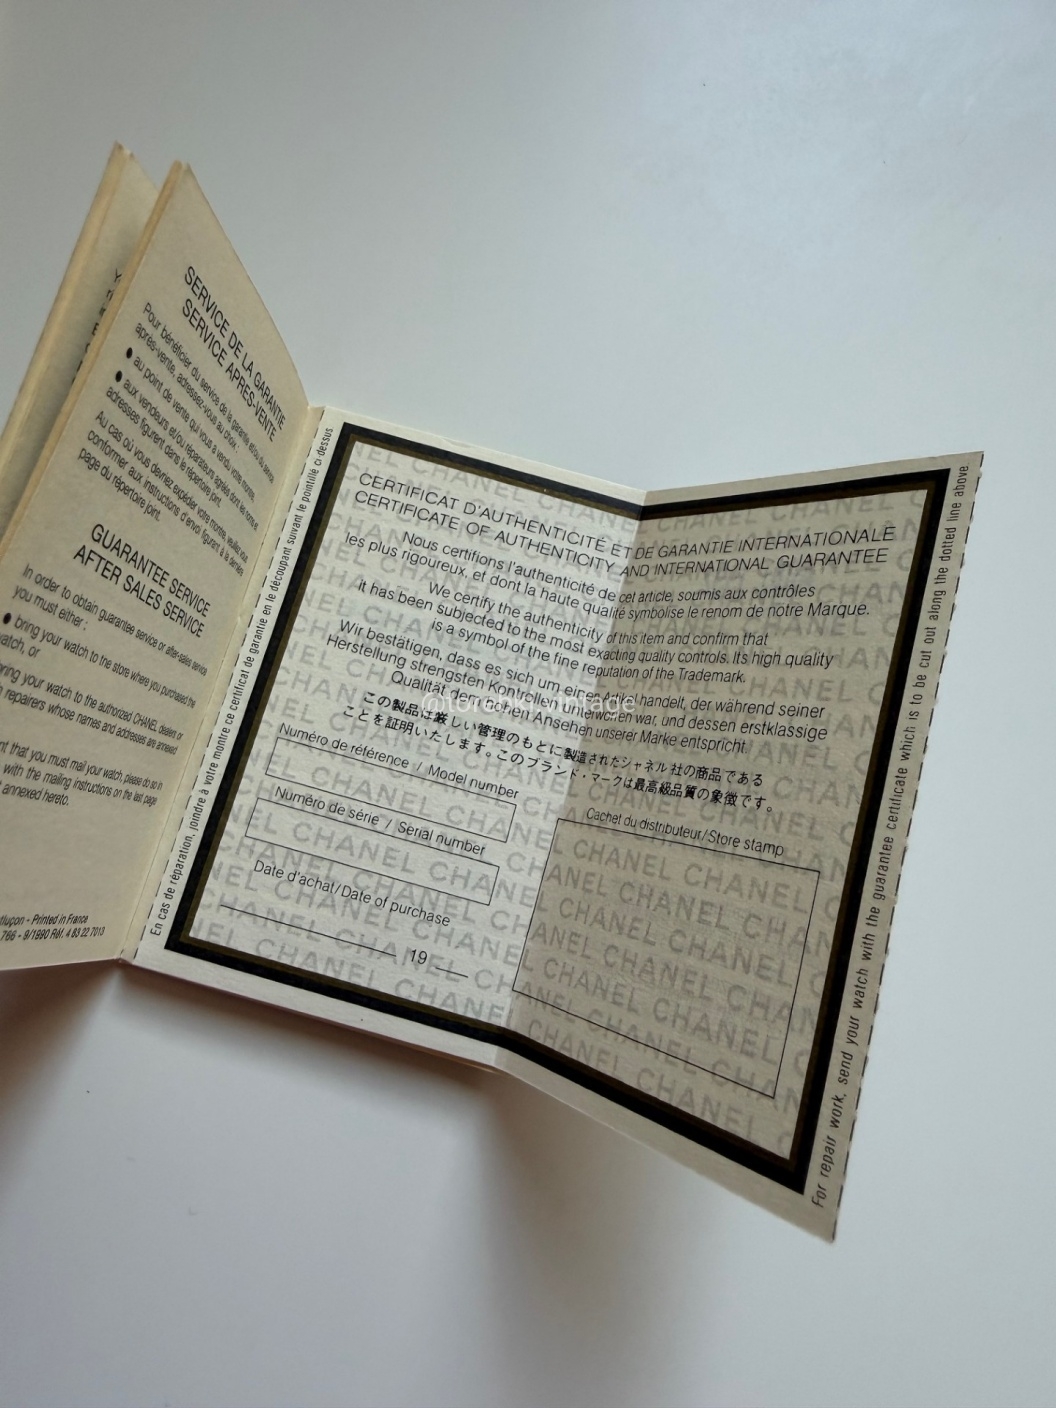 SERVICE DE LA GARANTIE
SERVICE APRES-VENTE
Pour bénéficier du service de la garantie et/ou du service
après-vente, adressez-vous au choix :
● au point de vente qui vous a vendu votre montre,
● aux vendeurs et/ou réparateurs agréés dont les noms et
adresses figurent dans le répertoire joint.
Au cas où vous devriez expédier votre montre, veuillez vous
conformer aux instructions d'envoi figurant à la dernière
page du répertoire joint.
GUARANTEE SERVICE
AFTER SALES SERVICE
In order to obtain guarantee service or after-sales service
you must either :
● bring your watch to the store where you purchased the
watch, or
your watch to the authorized CHANEL dealers or
repairers whose names and addresses are annexed
that you must mail your watch, please do so in
with the mailing instructions on the last page
annexed hereto.
- Printed in France
766 - 9/1990 Réf. 4 83 22 7013
En cas de réparation, joindre à votre montre ce certificat de garantie en le découpant suivant le pointillé ci-dessus.
CERTIFICAT D'AUTHENTICITÉ ET DE GARANTIE INTERNATIONALE
CERTIFICATE OF AUTHENTICITY AND INTERNATIONAL GUARANTEE
Nous certifions l'authenticité de cet article, soumis aux contrôles
les plus rigoureux, et dont la haute qualité symbolise le renom de notre Marque.
We certify the authenticity of this item and confirm that
it has been subjected to the most exacting quality controls. Its high quality
is a symbol of the fine reputation of the Trademark.
Wir bestätigen, dass es sich um einen Artikel handelt, der während seiner
Herstellung strengsten Kontrollen unterworfen war, und dessen erstklassige
Qualität dem hohen Ansehen unserer Marke entspricht.
この製品は厳しい管理のもとに製造されたシャネル社の商品である
ことを証明いたします。このブランド・マークは最高級品質の象徴です。
Numéro de référence / Model number
Numéro de série / Serial number
Date d'achat/Date of purchase
19
Cachet du distributeur/Store stamp
For repair work, send your watch with the guarantee certificate which is to be cut out along the dotted line above.